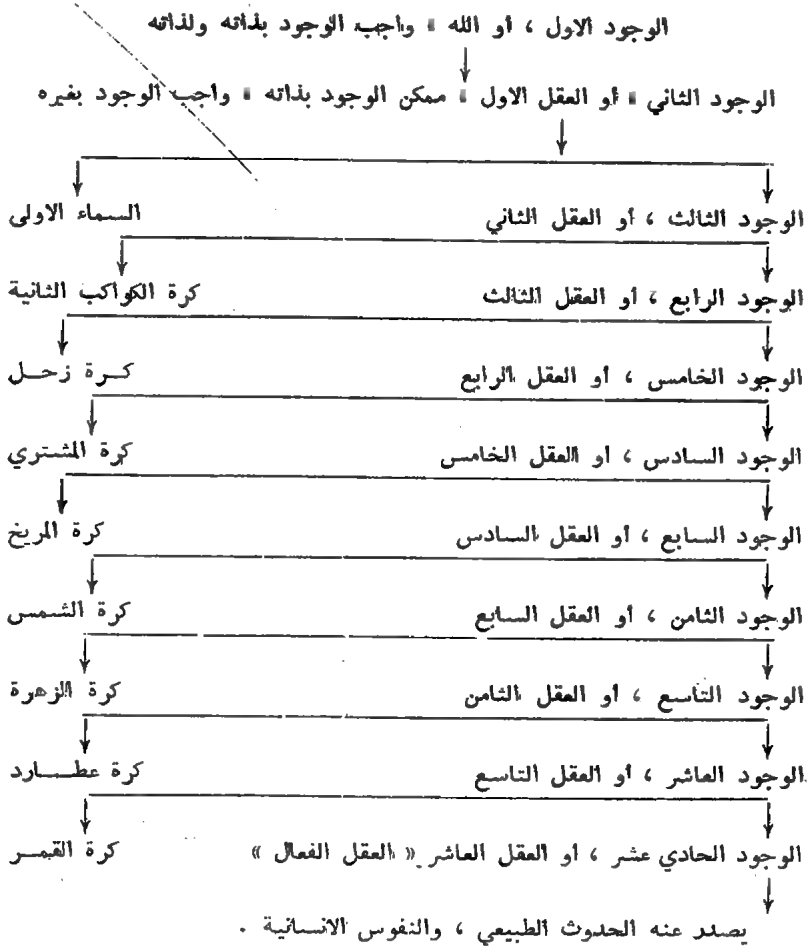 الوجود الاول ، أو الله = واجب الوجود بذاته ولذاته
الوجود الثاني = أو العقل الاول = ممكن الوجود بذاته = واجب الوجود بغيره
الوجود الثالث ، أو العقل الثاني السماء الاولى
الوجود الرابع ، أو العقل الثالث كرة الكواكب الثانية
الوجود الخامس ، أو العقل الرابع كـرة زحـل
الوجود السادس ، أو العقل الخامس كرة المشتري
الوجود السابع ، أو العقل السادس كرة المريخ
الوجود الثامن ، أو العقل السابع كرة الشمس
الوجود التاسع ، أو العقل الثامن كرة الزهرة
الوجود العاشر ، أو العقل التاسع كرة عطـارد
الوجود الحادي عشر ، أو العقل العاشر « العقل الفعال » كرة القمـر
يصدر عنه الحدوث الطبيعي ، والنفوس الانسانية .